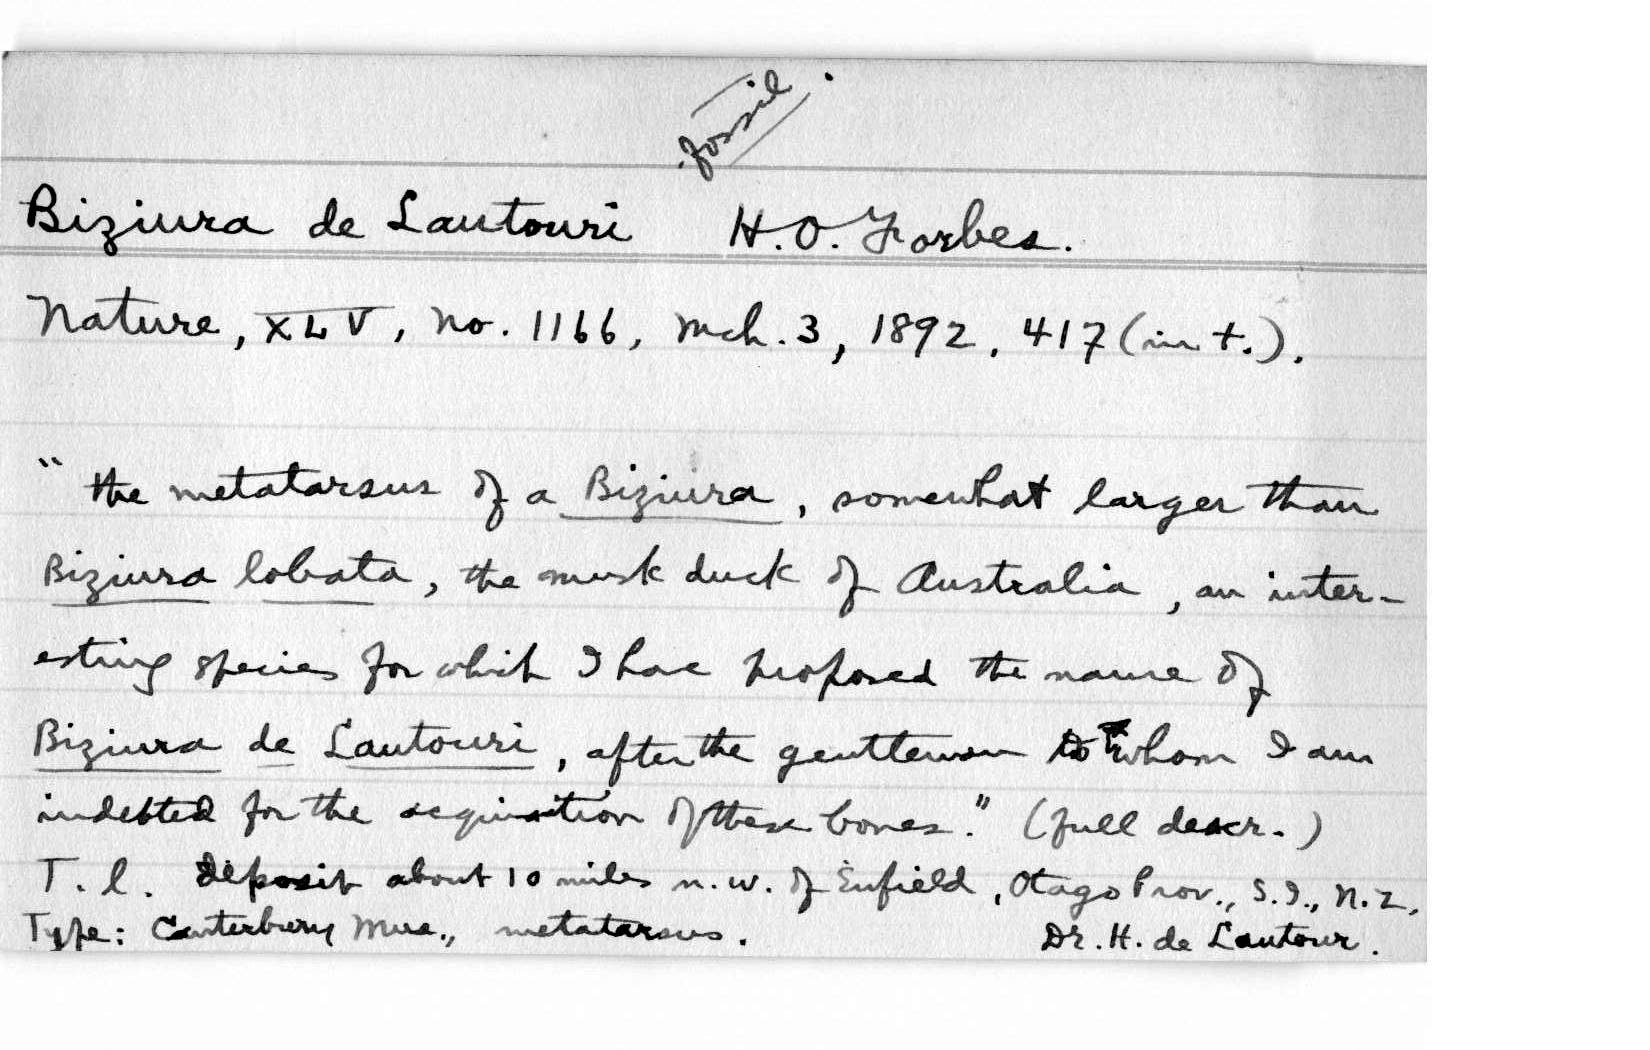 fossil.
Biziura de Lautouri H.O. Forbes.
Nature, XLV, no. 1166, Mch. 3, 1892, 417 (in t.).
"the metatarsus of a Biziura, somewhat larger than
Biziura lobata, the musk duck of Australia, an inter-
esting species for which I have proposed the name of
Biziura de Lautouri, after the gentleman to whom I am
indebted for the acquisition of these bones." (full descr.)
T. l. Deposit about 10 miles n.w. of Enfield, Otago Prov., S.I., N.Z.
Type: Canterbury Mus., metatarsus. Dr. H. de Lautour.